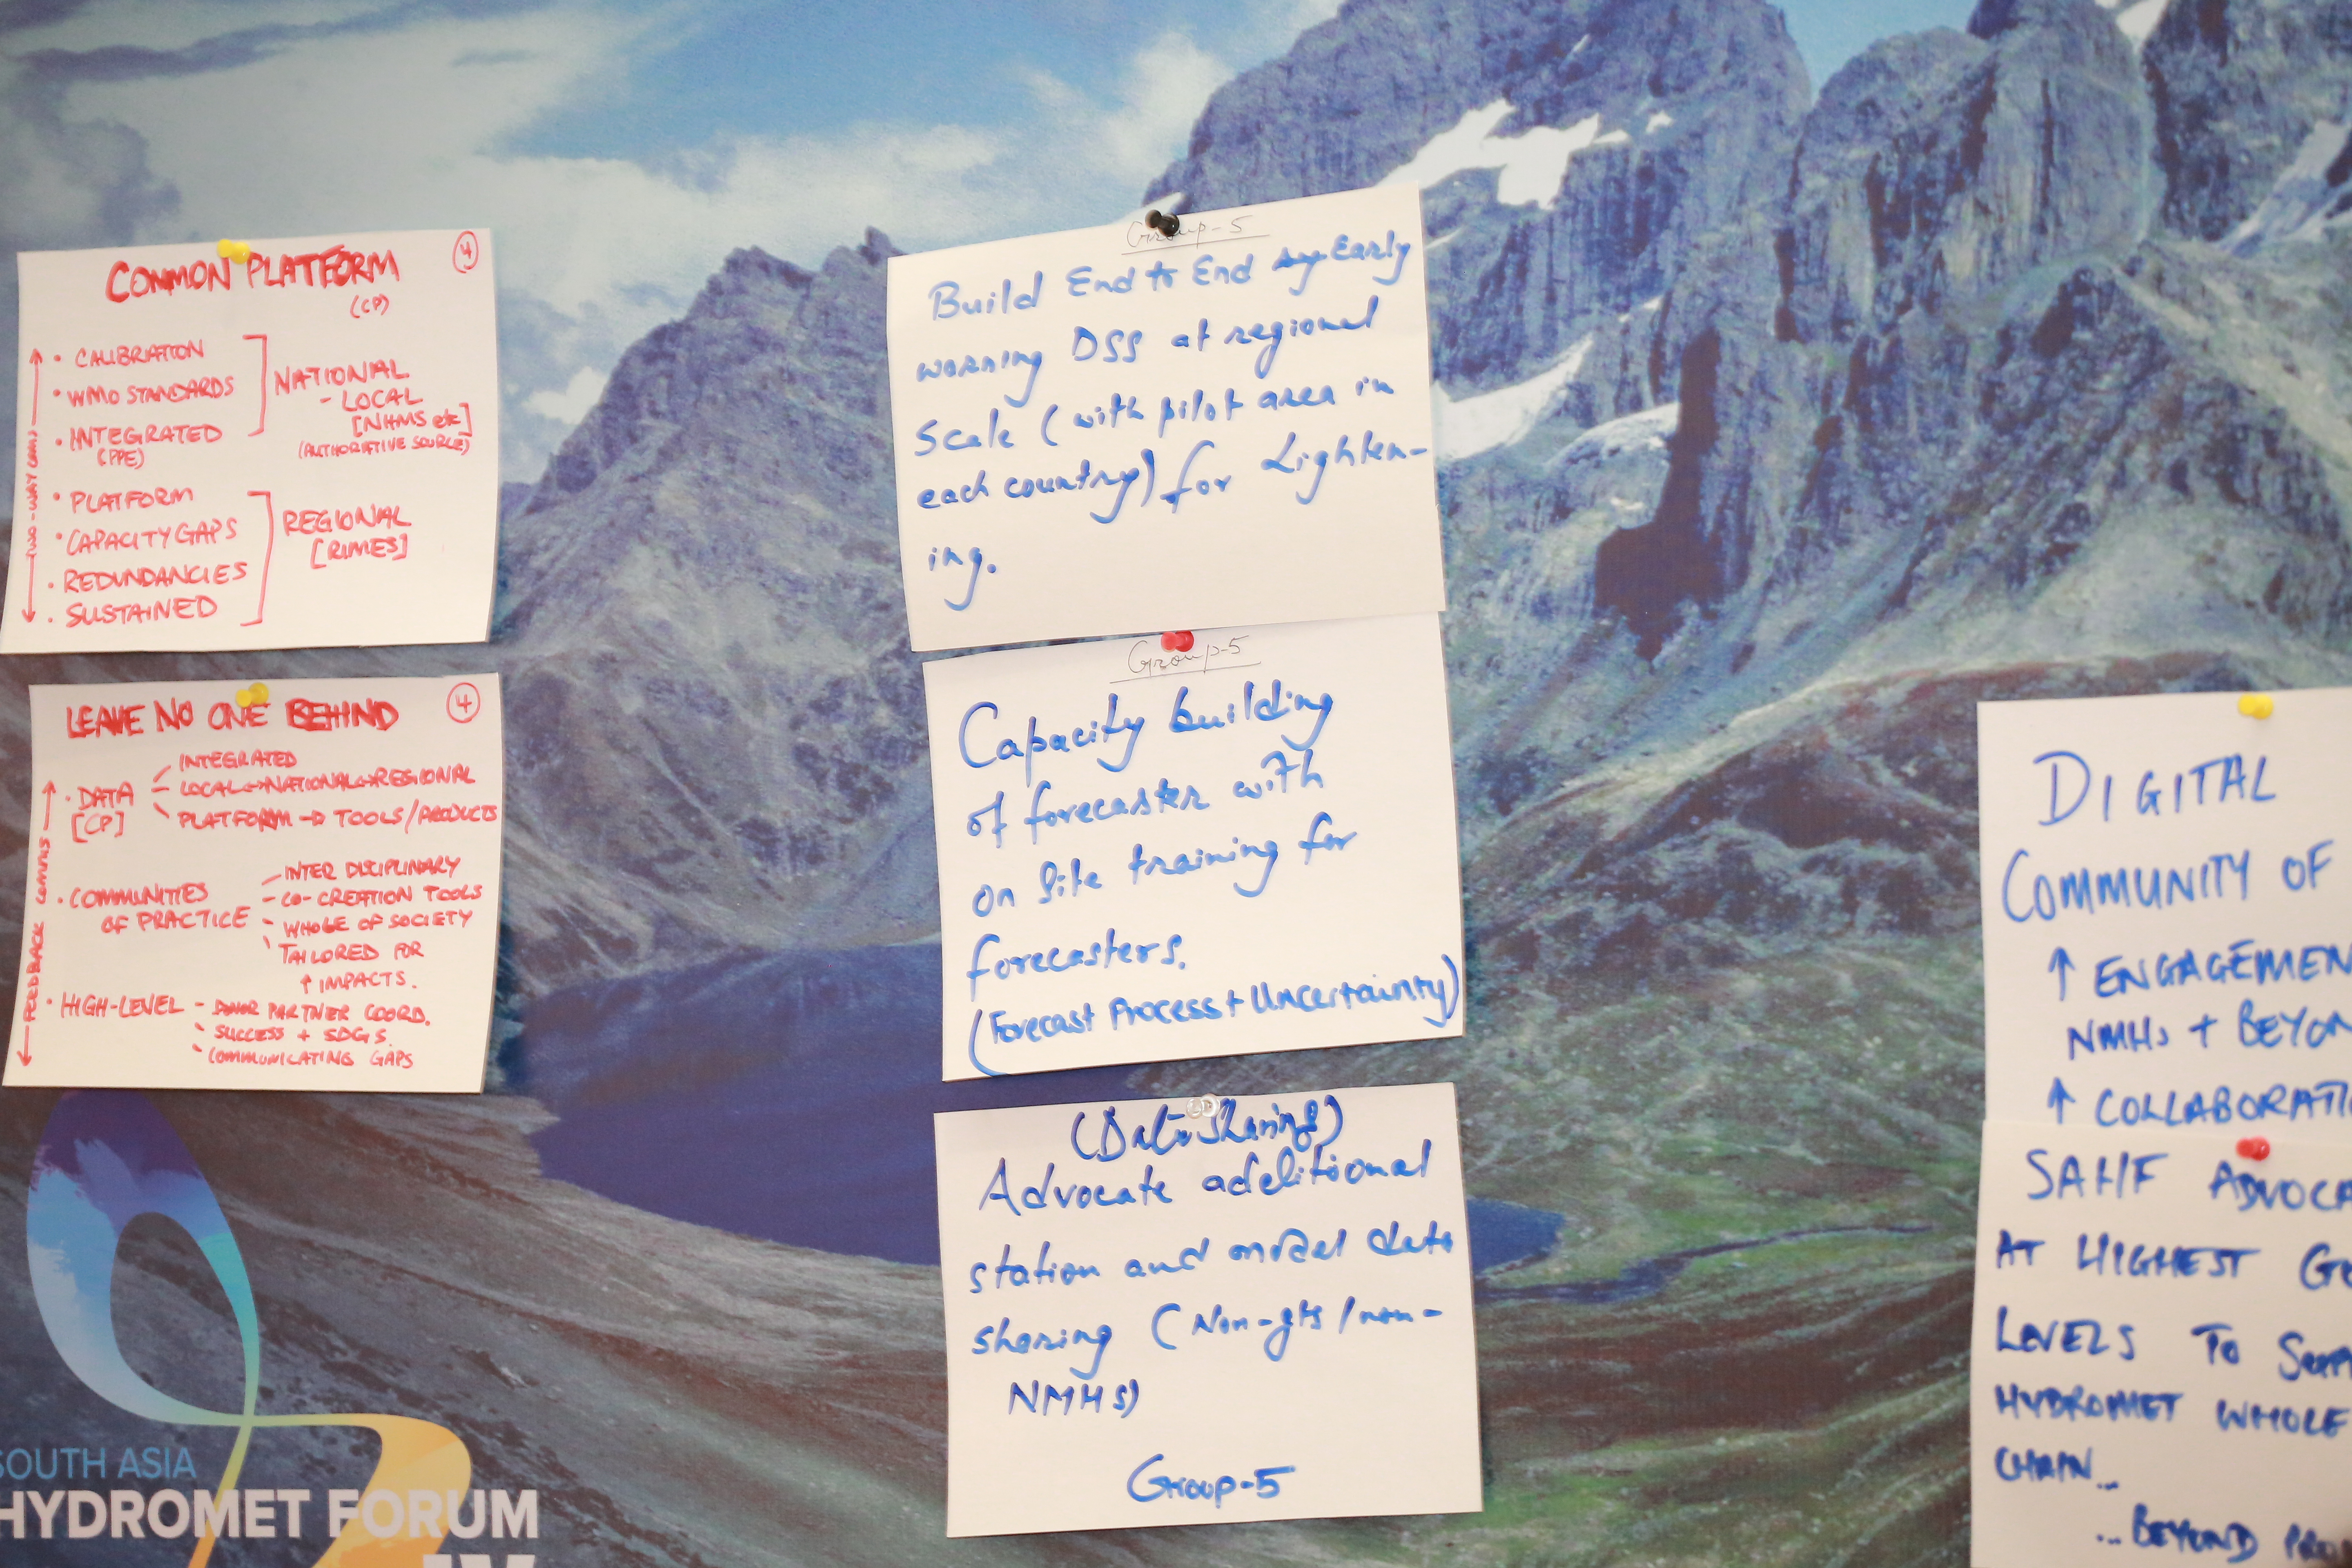 COMMON PLATFORM
4
(CP)
TWO-WAY
• CALIBRATION
• WMO STANDARDS
• INTEGRATED
(PPE)
NATIONAL
- LOCAL
[NHMS etc]
(AUTHORIATIVE SOURCE)
• PLATFORM
• CAPACITY GAPS
• REDUNDANCIES
• SUSTAINED
REGIONAL
[RIMES]
LEAVE NO ONE BEHIND
4
FEEDBACK COMMS
• DATA
[CP]
INTEGRATED
LOCAL↔NATIONAL↔REGIONAL
PLATFORM → TOOLS/PRODUCTS
• COMMUNITIES
OF PRACTICE
- INTER DISCIPLINARY
- CO-CREATION TOOLS
- WHOLE OF SOCIETY
- TAILORED FOR
↑ IMPACTS.
• HIGH-LEVEL
- DONOR PARTNER COORD.
- SUCCESS + SDGS.
- COMMUNICATING GAPS
SOUTH ASIA
HYDROMET FORUM
Group-5
Build End to End Early
warning DSS at regional
Scale (with pilot area in
each country) for Lighten-
ing.
Group-5
Capacity building
of forecaster with
on Site training for
forecasters.
(Forecast Process + Uncertainty)
(Data Sharing)
Advocate additional
station and model data
sharing (Non-gts/non-
NMHS)
Group-5
DIGITAL
COMMUNITY OF
↑ ENGAGEMEN
NMHs + BEYON
↑ COLLABORATI
SAHF ADVOCA
AT HIGHEST G
LEVELS TO
HYDROMET WHOLE
CHAIN...
...BEYOND